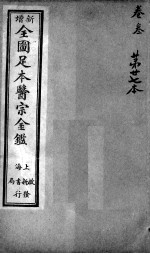 卷叁
第廿七本
新增
全圖足本醫宗金鑑
上海
啟新書局
發行